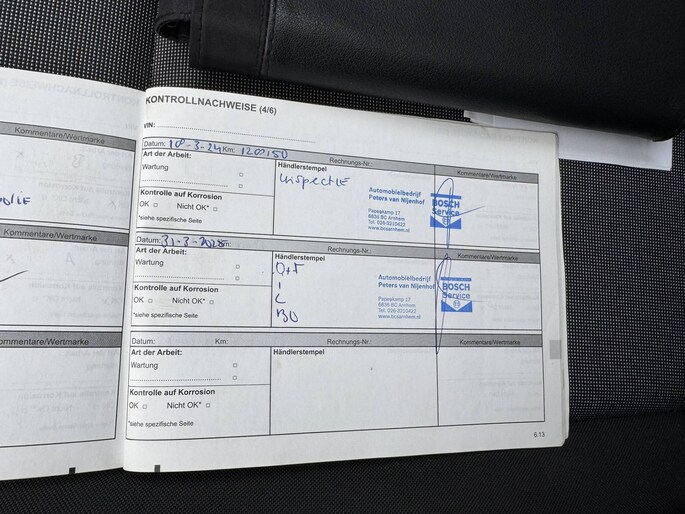 Kommentare/Wertmarke
Kommentare/Wertmarke
Kommentare/Wertmarke
KONTROLLNACHWEISE (4/6)
VIN:
Datum: 18-3-24 Km: 120150 Rechnungs-Nr.: Kommentare/Wertmarke
Art der Arbeit: Händlerstempel
Wartung inspectie
Kontrolle auf Korrosion
OK Nicht OK*
*siehe spezifische Seite
Automobielbedrijf
Peters van Nijenhof
Papegkamp 17
6836 BC Arnhem
Tel. 026-3210422
www.bcsarnhem.nl
BOSCH
Service
Datum: 31-3-2025 Km: Rechnungs-Nr.: Kommentare/Wertmarke
Art der Arbeit: Händlerstempel
Wartung
O+F
I
L
BO
Kontrolle auf Korrosion
OK Nicht OK*
*siehe spezifische Seite
Automobielbedrijf
Peters van Nijenhof
Papegkamp 17
6836 BC Arnhem
Tel. 026-3210422
www.bcsarnhem.nl
BOSCH
Service
Datum: Km: Rechnungs-Nr.: Kommentare/Wertmarke
Art der Arbeit: Händlerstempel
Wartung
Kontrolle auf Korrosion
OK Nicht OK*
*siehe spezifische Seite
6.13